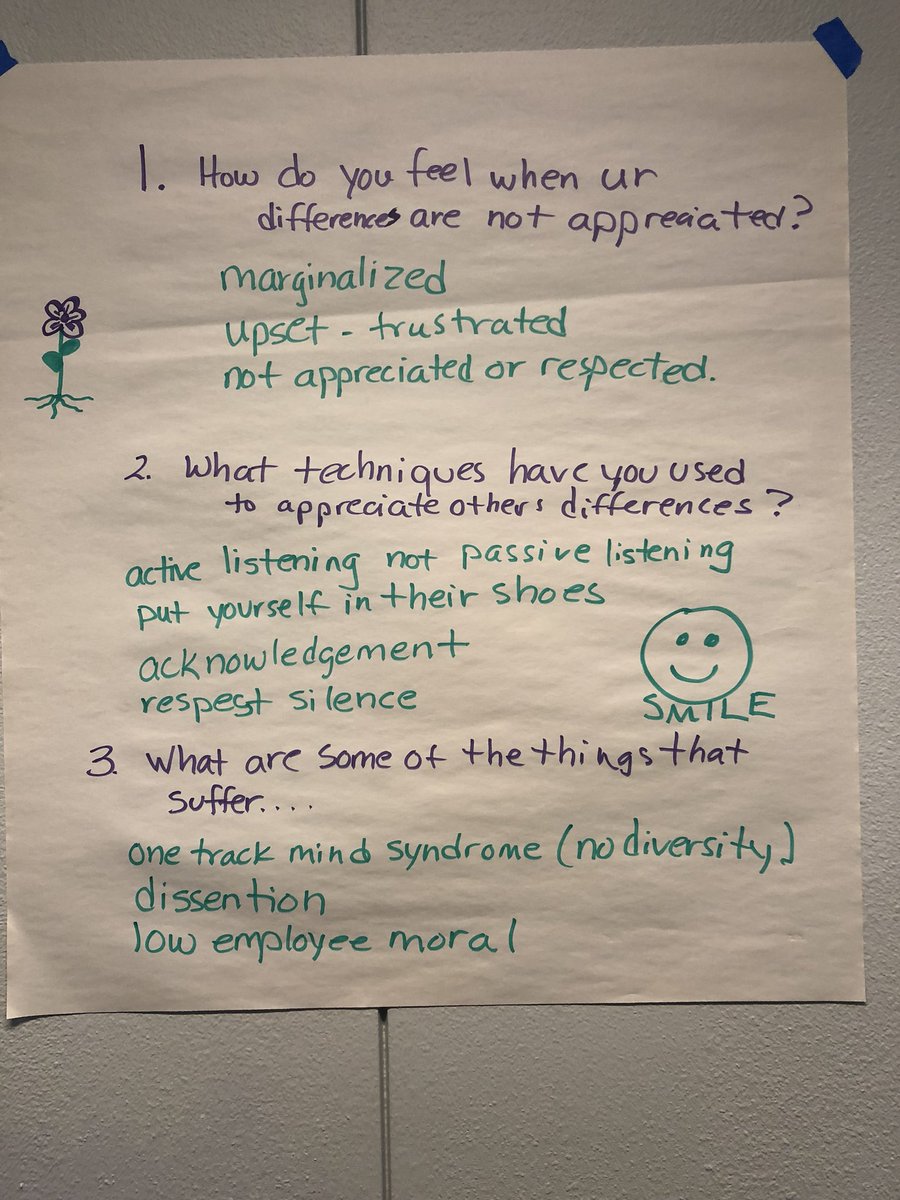 1. How do you feel when ur
differences are not appreciated?
marginalized
upset - frustrated
not appreciated or respected.
2. What techniques have you used
to appreciate others differences?
active listening not passive listening
put yourself in their shoes
acknowledgement
respest silence
SMILE
3. What are some of the things that
suffer....
one track mind syndrome (no diversity)
dissention
low employee moral